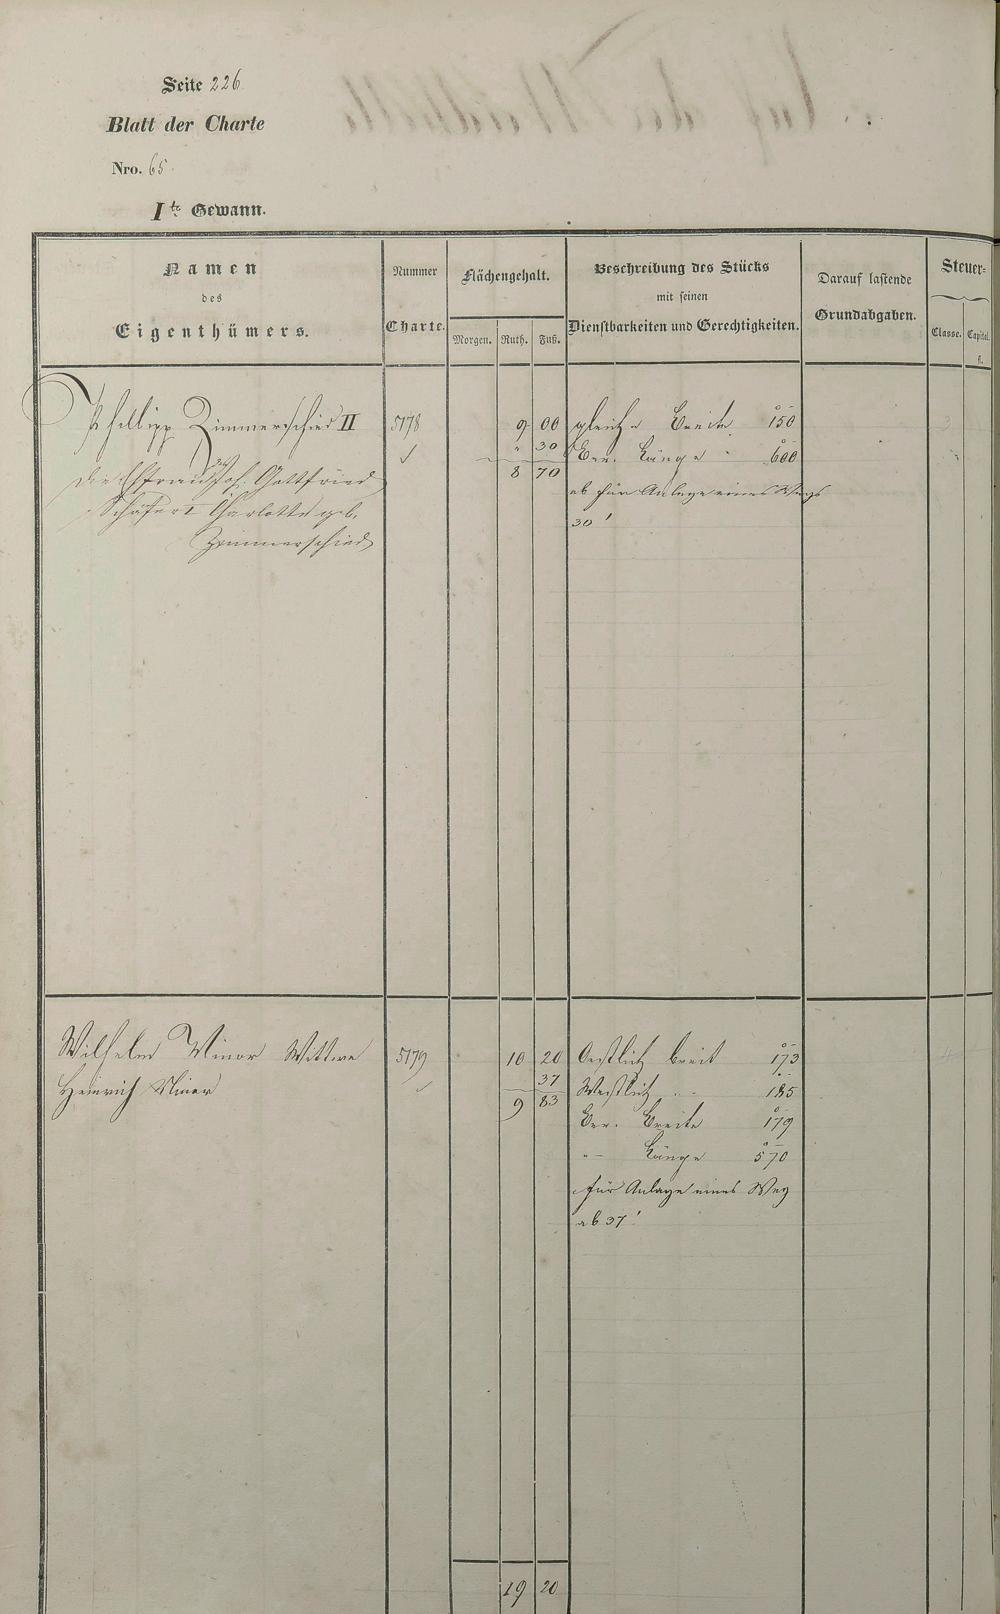 Seite 226
Blatt der Charte
Nro. 65.
I te Gewann.
Namen des Eigenthümers.
Nummer Charte.
Flächengehalt.
Morgen. Ruth. Fuß.
Beschreibung des Stücks mit seinen Dienstbarkeiten und Gerechtigkeiten.
Darauf lastende Grundabgaben.
Steuer-
Classe. Capital. fl.
Philipp Zimmerschied II 5178 9 00 gleiche Breite 150
" 30 Ber. Länge 600
8 70
Die Ehefrau des Jos. Gottfried
Schäfer I Charlotte geb.
Zimmerschied
ab für Anlage eines Wegs
30'
Wilhelm Minor Wittwe 5179 10 20 Oestlich breit 173
Heinrich Minor 37 Westlich " 185
9 83 Ber. Breite 179
" Länge 570
für Anlage eines Weg
ab 37'
19 20